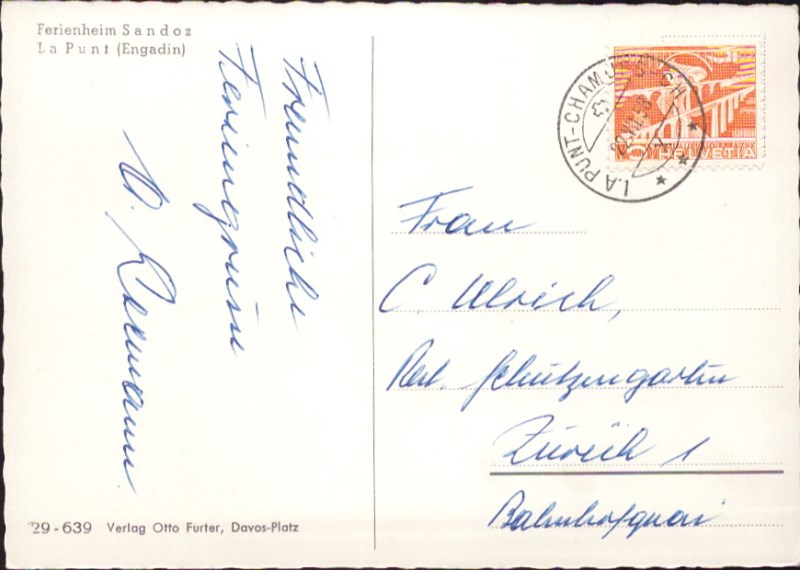 Ferienheim Sandoz
La Punt (Engadin)
Freundliche
Feriengrüsse
LA PUNT-CHAMUES-CH.
22.VII.
5
HELVETIA
Frau
C. Ulrich,
Rest. Schützengarten
Zürich 1
Bahnhofquai
29-639 Verlag Otto Furter, Davos-Platz